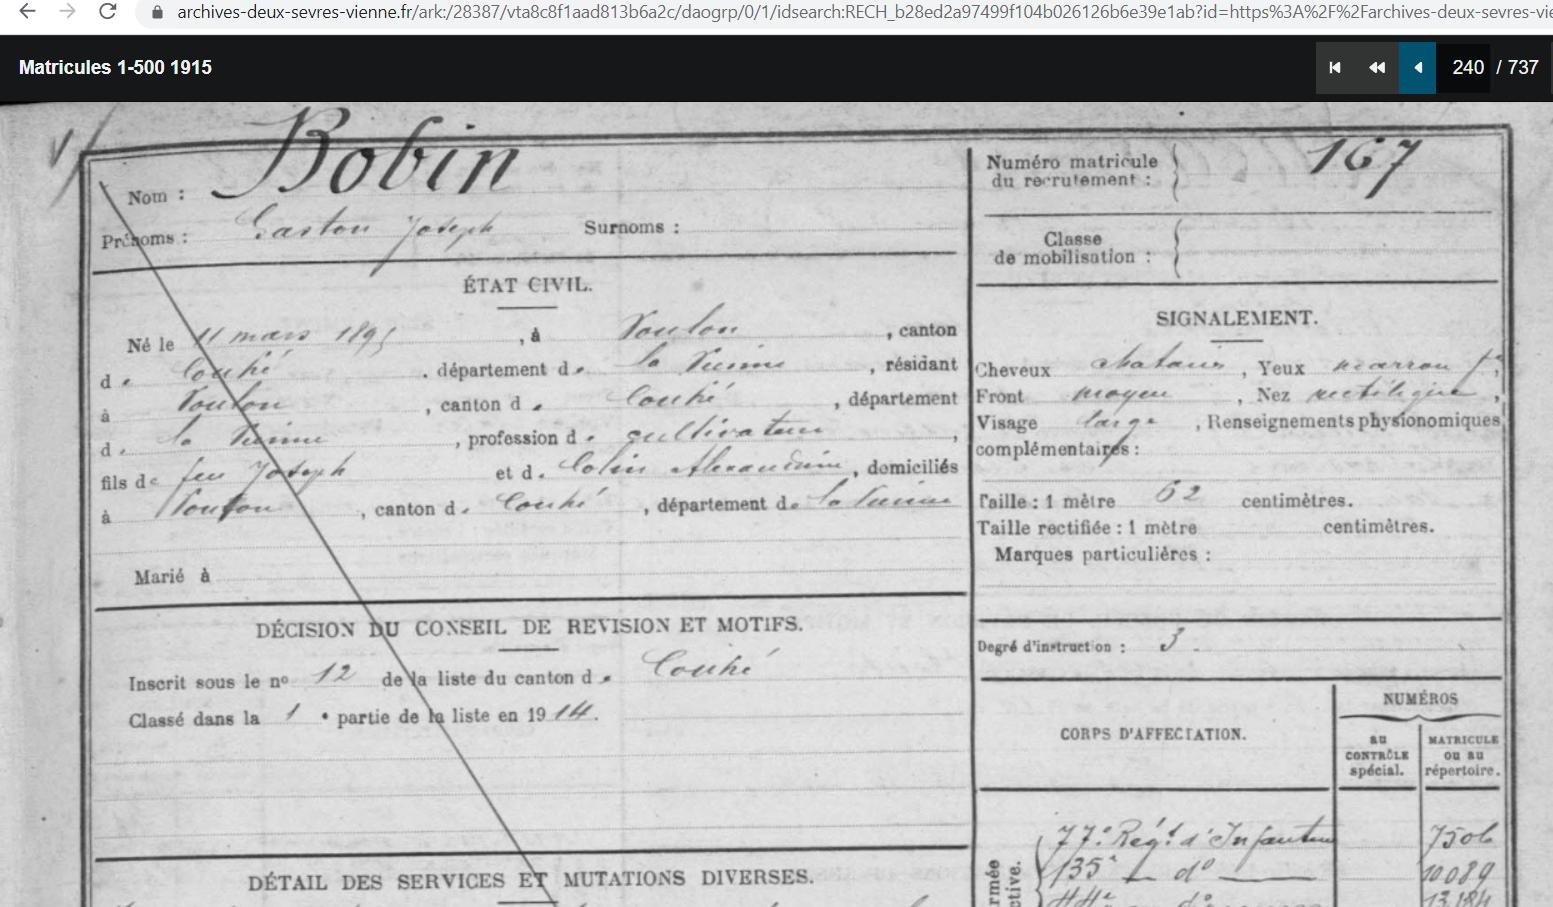 archives-deux-sevres-vienne.fr/ark:/28387/vta8c8f1aad813b6a2c/daogrp/0/1/idsearch:RECH_b28ed2a97499f104b026126b6e39e1ab?id=https%3A%2F%2Farchives-deux-sevres-vie
Matricules 1-500 1915
240 / 737
Nom : Bobin
Prénoms : Gaston Joseph Surnoms :
ÉTAT CIVIL.
Né le 11 mars 1895, à Voulon, canton
de Couhé, département de la Vienne, résidant
à Voulon, canton de Couhé, département
de la Vienne, profession de cultivateur,
fils de feu Joseph et de Colin Alexandrine, domiciliés
à Voulon, canton de Couhé, département de la Vienne
Marié à
DÉCISION DU CONSEIL DE REVISION ET MOTIFS.
Inscrit sous le nº 12 de la liste du canton de Couhé
Classé dans la 1e partie de la liste en 1914.
DÉTAIL DES SERVICES ET MUTATIONS DIVERSES.
Numéro matricule
du recrutement : 167
Classe
de mobilisation :
SIGNALEMENT.
Cheveux chatains, Yeux marron
Front moyen, Nez rectiligne,
Visage large, Renseignements physionomiques
complémentaires :
Taille : 1 mètre 62 centimètres.
Taille rectifiée : 1 mètre centimètres.
Marques particulières :
Degré d'instruction : 3.
CORPS D'AFFECTATION.
NUMÉROS
au
CONTRÔLE
spécial.
MATRICULE
ou au
répertoire.
77e Régt d'Infanterie 7506
135e dº 10089
13184